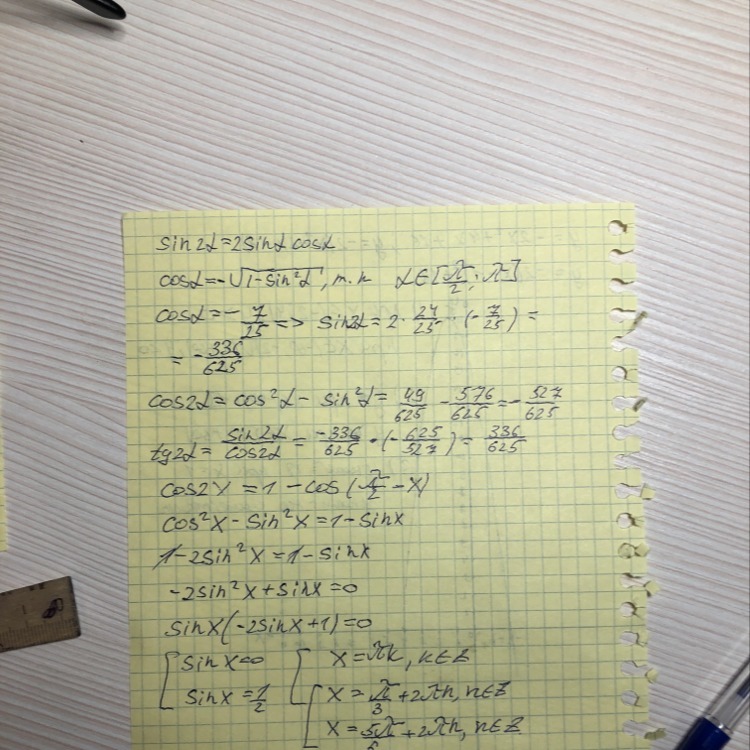 sin2α=2sinα cosα
cosα=-√(1-sin²α), т.к α∈[π/2; π]
cosα=-7/25 => sin2α=2·24/25·(-7/25)=
=-336/625
cos2α=cos²α-sin²α=49/625-576/625=-527/625
tg2α=sin2α/cos2α=-336/625·(-625/527)=336/625
cos2x=1-cos(π/2-x)
cos²x-sin²x=1-sinx
1-2sin²x=1-sinx
-2sin²x+sinx=0
sinx(-2sinx+1)=0
[sinx=0 [x=πk, k∈Z
sinx=1/2 [x=π/3+2πn, n∈Z
x=5π/6+2πn, n∈Z